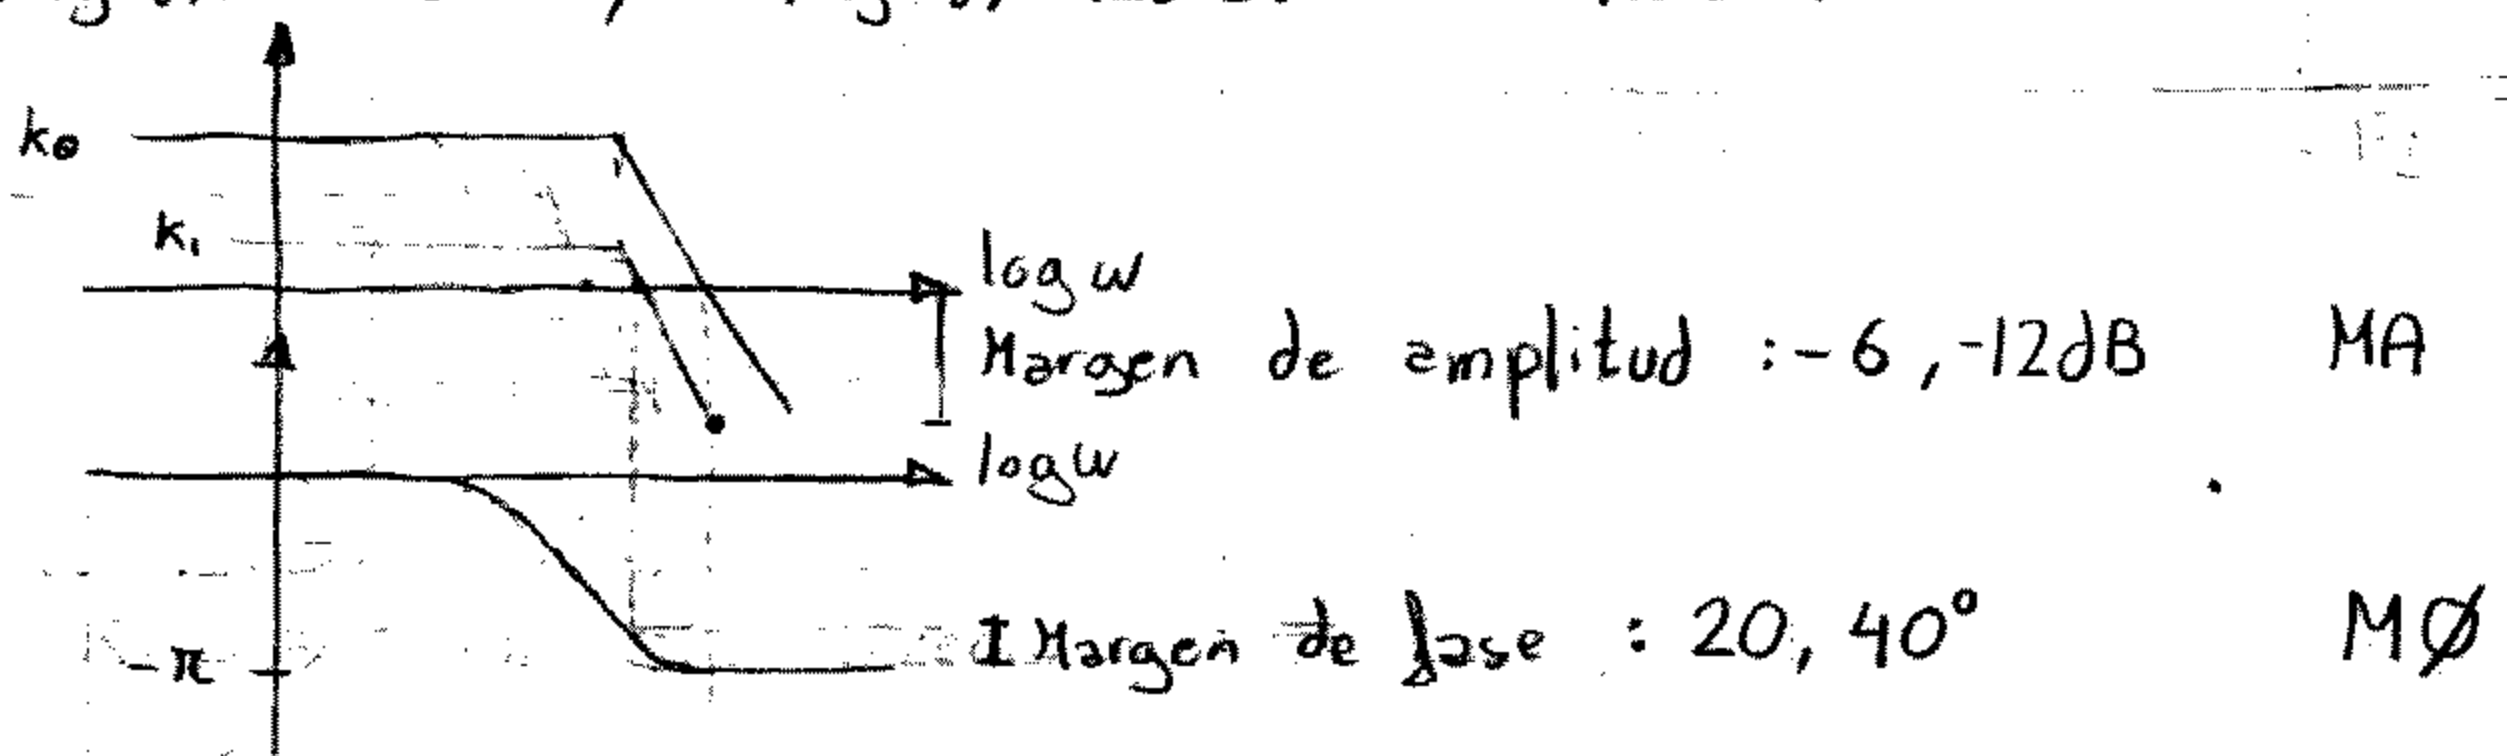 k₀
k₁
log w
Margen de amplitud : -6, -12dB MA
log w
-π
I Margen de fase : 20, 40° MØ